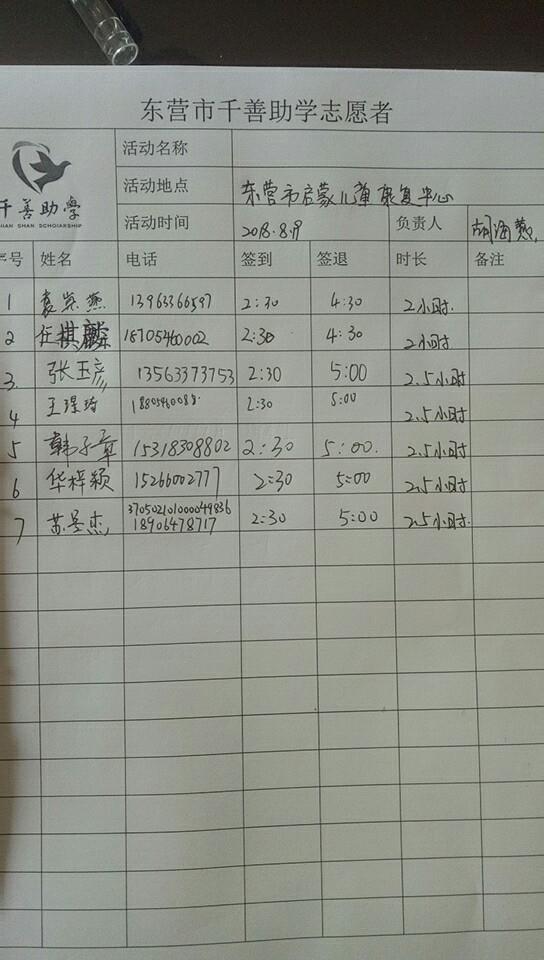 东营市千善助学志愿者
千善助學
QIAN SHAN SCHOARSHIP
活动名称
活动地点 东营市启蒙儿童康复中心
活动时间 2018.8.9 负责人 胡海燕
序号 姓名 电话 签到 签退 时长 备注
1 袁紫燕 13963366597 2:30 4:30 2小时.
2 任棋麟 18705460002 2:30 4:30 2小时
3. 张玉彦 13563373753 2:30 5:00 2.5小时
4 王瑾琦 2:30 5:00 2.5小时
5 韩子章 15318308802 2:30 5:00. 2.5小时
6 华梓颖 15266002777 2:30 5:00 2.5小时
7 苏昱杰 37050210100049836 2:30 5:00 2.5小时.
18906478717